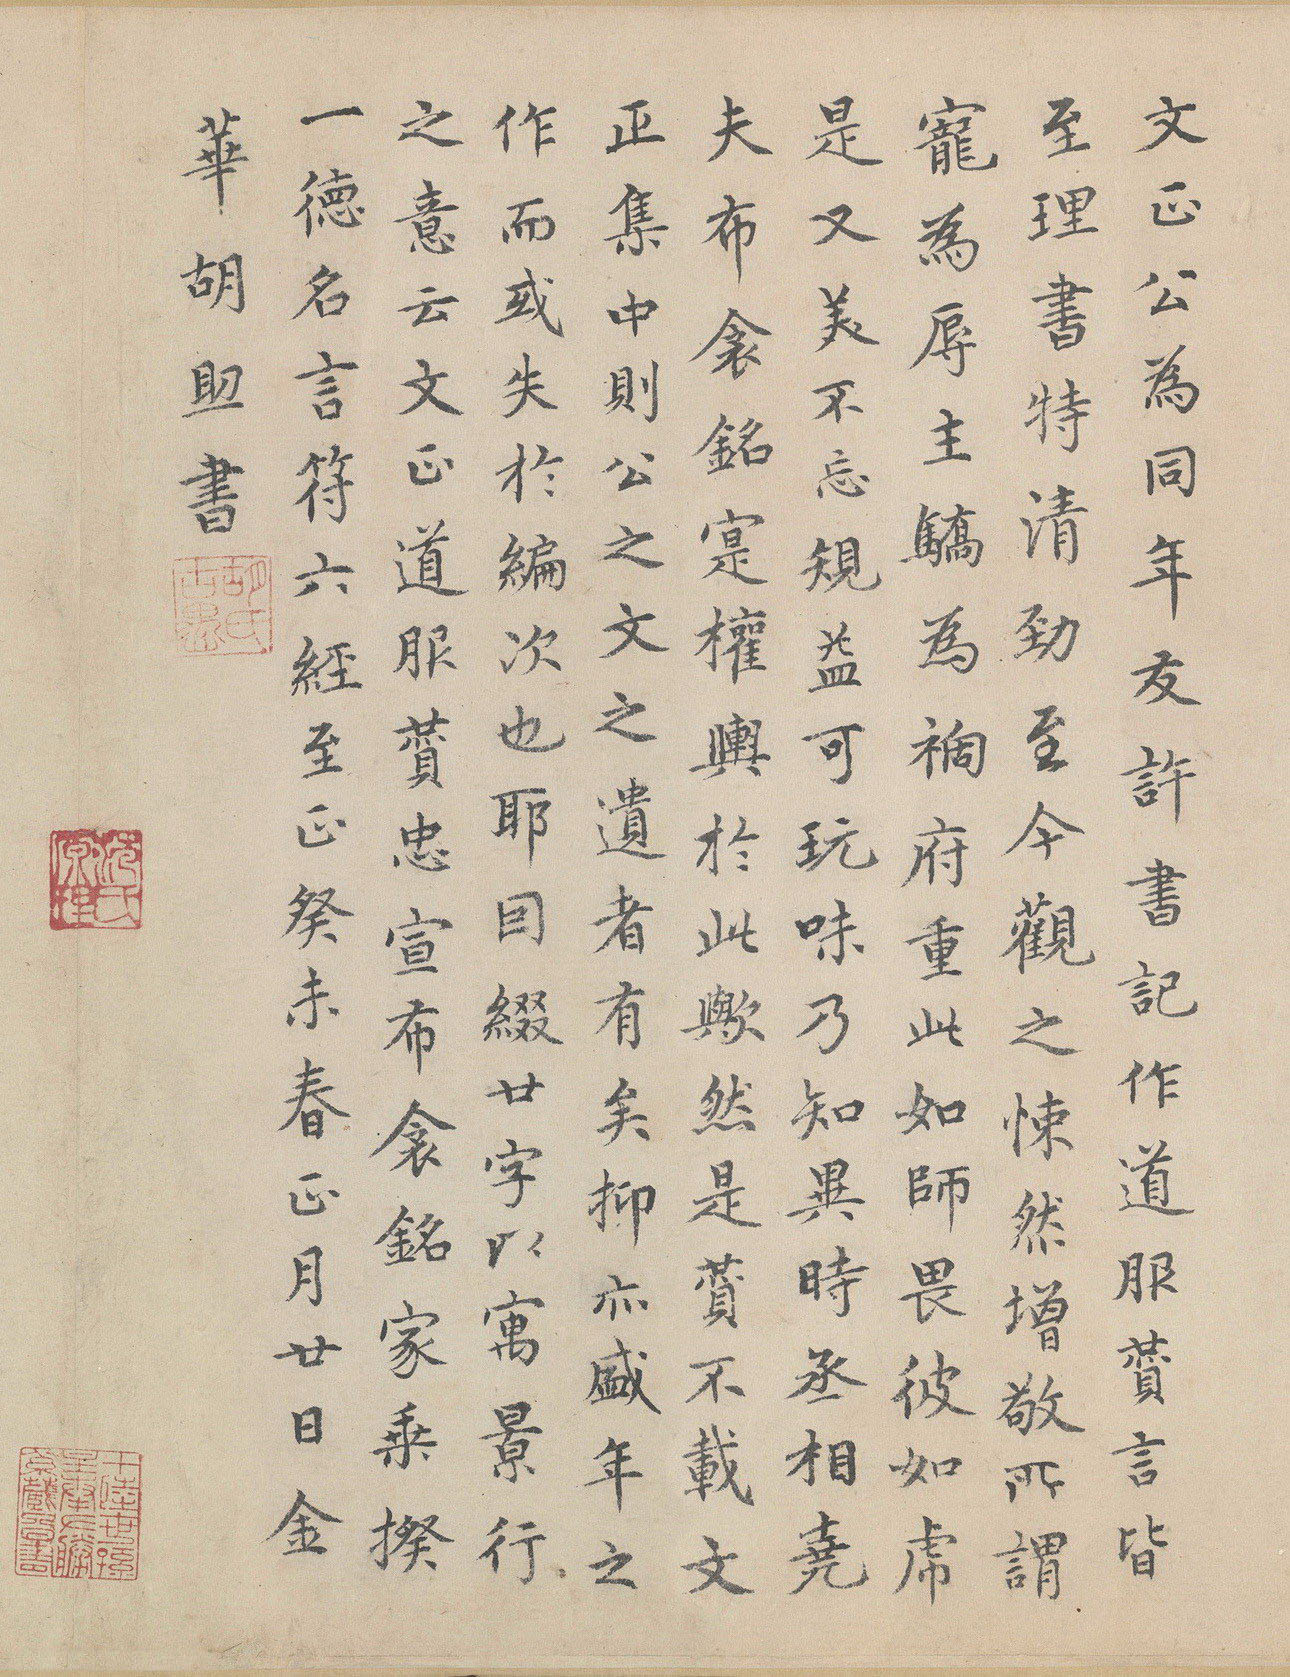 文正公為同年友許書記作道服賛言皆
至理書特清勁至今觀之悚然增敬所謂
寵為辱主驕為禍府重此如師畏彼如虎
是又美不忘規益可玩味乃知異時丞相堯
夫布衾銘寔權輿於此歟然是賛不載文
正集中則公之文之遺者有矣抑亦盛年之
作而或失於編次也耶因綴廿字以寓景行
之意云文正道服賛忠宣布衾銘家乗揆
一德名言符六經至正癸未春正月廿日金
華胡助書
胡氏古愚